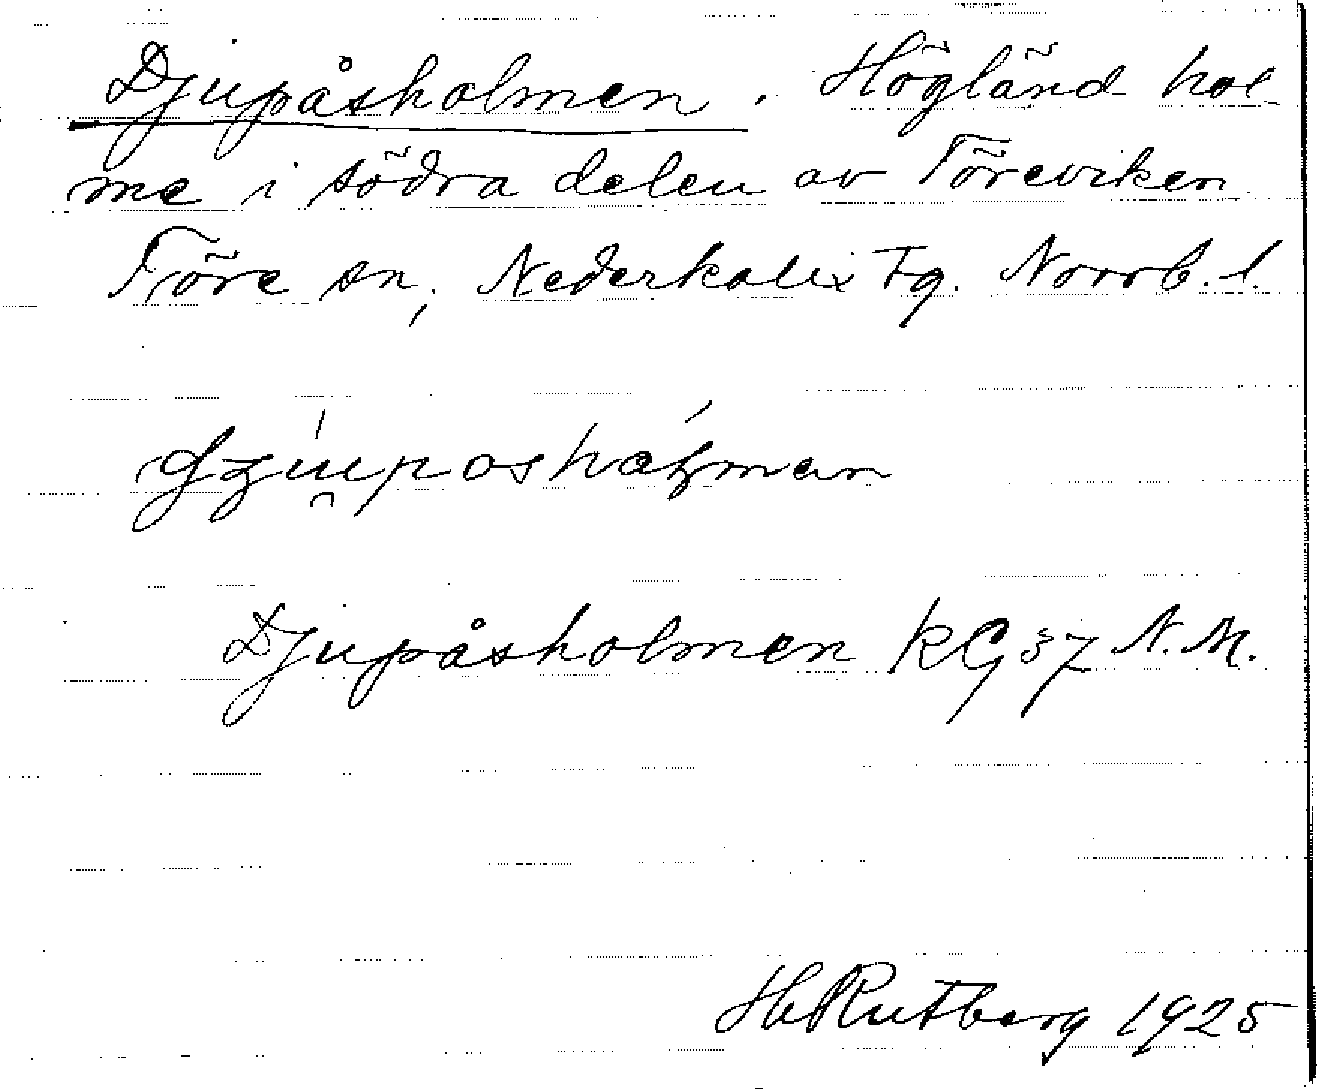 Djupåsholmen. Högländ hol-
me i södra delen av Töreviken
Töre sn, Nederkalix Tg. Norrb. l.
Djupåsholmen KG 37 N.M.
H. Rutberg 1925